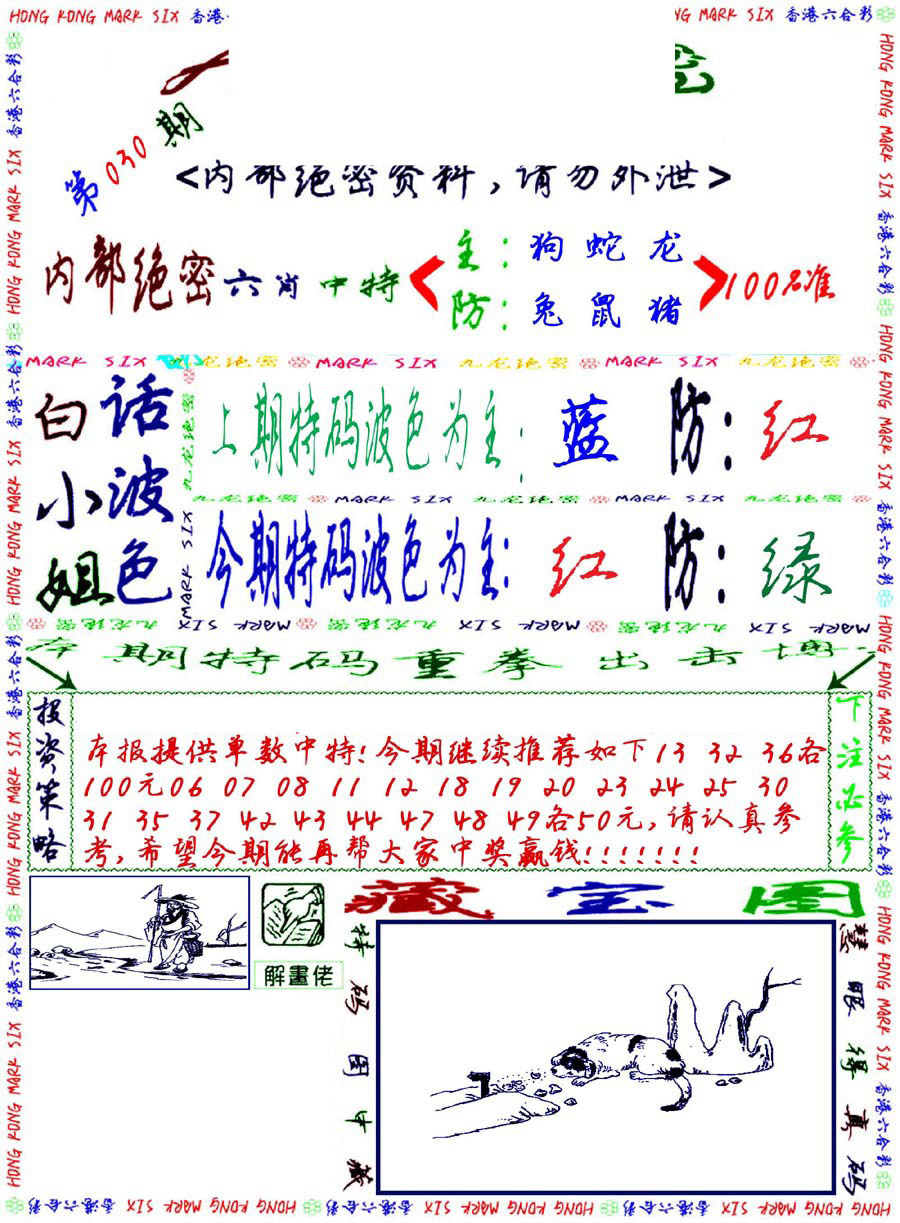 HONG KONG MARK SIX 香港
NG MARK SIX 香港六合彩
第030期
<内部绝密资料,请勿外泄>
内部绝密六肖中特
主:狗 蛇 龙
防:兔 鼠 猪
100%准
MARK SIX 九龙绝密 MARK SIX 九龙绝密 MARK SIX 九龙绝密
白话
小波
姐色
上期特码波色为主:蓝 防:红
九龙绝密 MARK SIX 九龙绝密 MARK SIX 九龙绝密
今期特码波色为主:红 防:绿
九龙绝密 MARK SIX 九龙绝密 MARK SIX 九龙绝密 MARK SIX
本期特码重拳出击
投资策略
本报提供单数中特!今期继续推荐如下13 32 36各
100元06 07 08 11 12 18 19 20 23 24 25 30
31 35 37 42 43 44 47 48 49各50元,请认真参
考,希望今期能再帮大家中奖赢钱!!!!!!!
下注必参
解畫佬
藏宝图
特码图中藏
慧眼得真码
HONG KONG MARK SIX 香港六合彩